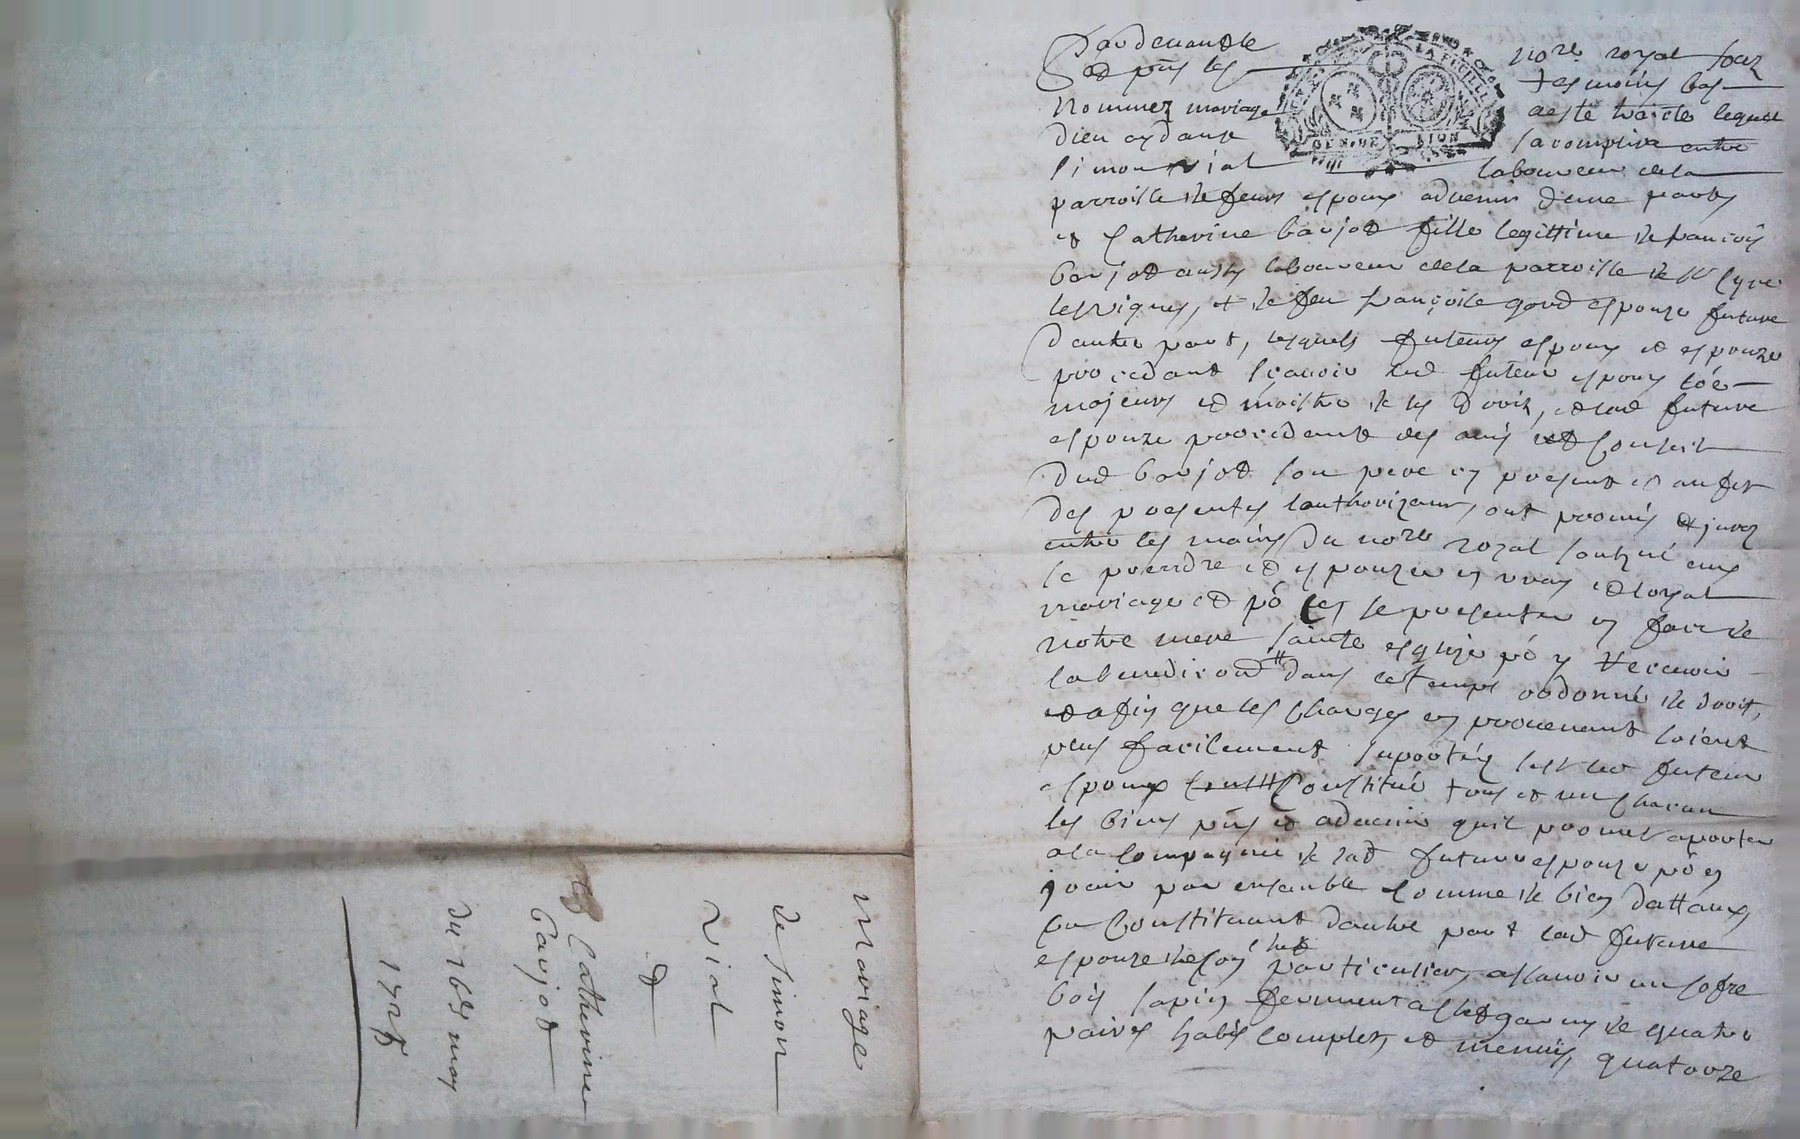 Pardevant le notre royal souz
et pns les tesmoins bas
nommez mariage a esté traicté lequel
Dieu aydant sacomplira entre
Simon Vial laboureur de la
parroisse de feurs espoux advenir dune part
et Catherine Baujod fille legittime de francois
Baujod aussy laboureur de la parroisse de St Cyre
les vignes, et de feu françoise gord espouze future
dautre part, lesquels futeurs espoux et espouze
procedant scavoir led futeur espoux coe
majeurs et maistre de ses droits, et lad future
espouze procedant des avis et Conseil
dud Baujod son pere cy present et au fet
des presentes lauthorizant, ont promis et jurez
entre les mains du notre royal soubzné eux
se prendre et espouzer en vray et loyal
mariage et po cet se presenter en face de
notre mere sainte esglize po y recevoir
la benediction dans le temps ordonné de droit,
et afin que les charges en provenant soient
plus facilement suportéz sest led futeur
espoux Constitué tous et un chacun
les biens pns et advenir quil promet aporter
a la Compagnie de lad future espouze po en
jouir par ensemble Comme de bien dottaux,
Se Constituant dautre part lad future
espouze de son chef particulier, assavoir un cofre
bois sapin fermant a clef garny de quatre
paires habis complets et menus, quatorze
LA FEUILLE
GENER LION
Mariage
de Simon
Vial
&
Catherine
Baujod
du 16e may